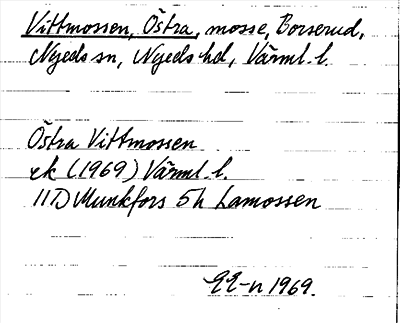 Vittmossen, Östra, mosse, Borserud,
Nyeds sn, Nyeds hd, Värml. l.
Östra Vittmossen
ek (1969) Värml. l.
11D Munkfors 5h Lamossen
EE-n 1969.